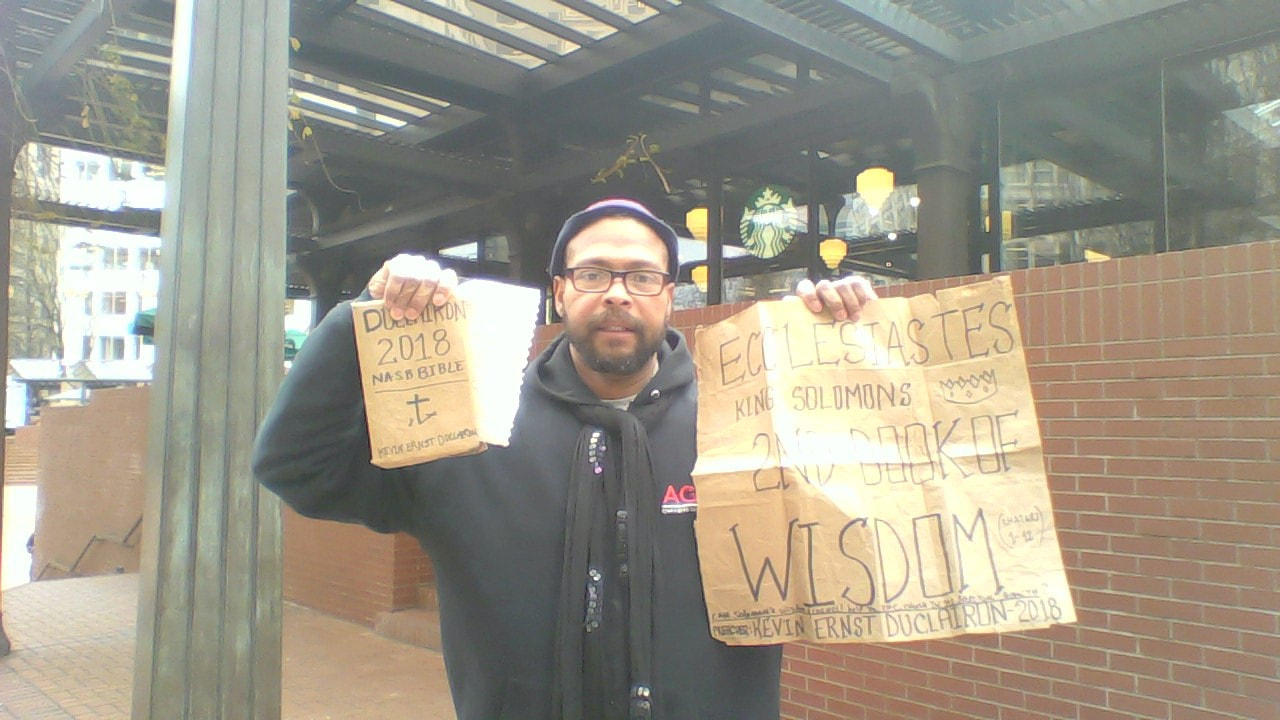 DUCLAIRON
2018
NASB BIBLE
KEVIN ERNST DUCLAIRON
AC
ECCLESIASTES
KING SOLOMONS
2ND BOOK OF
WISDOM
1-12
KEVIN ERNST DUCLAIRON-2018